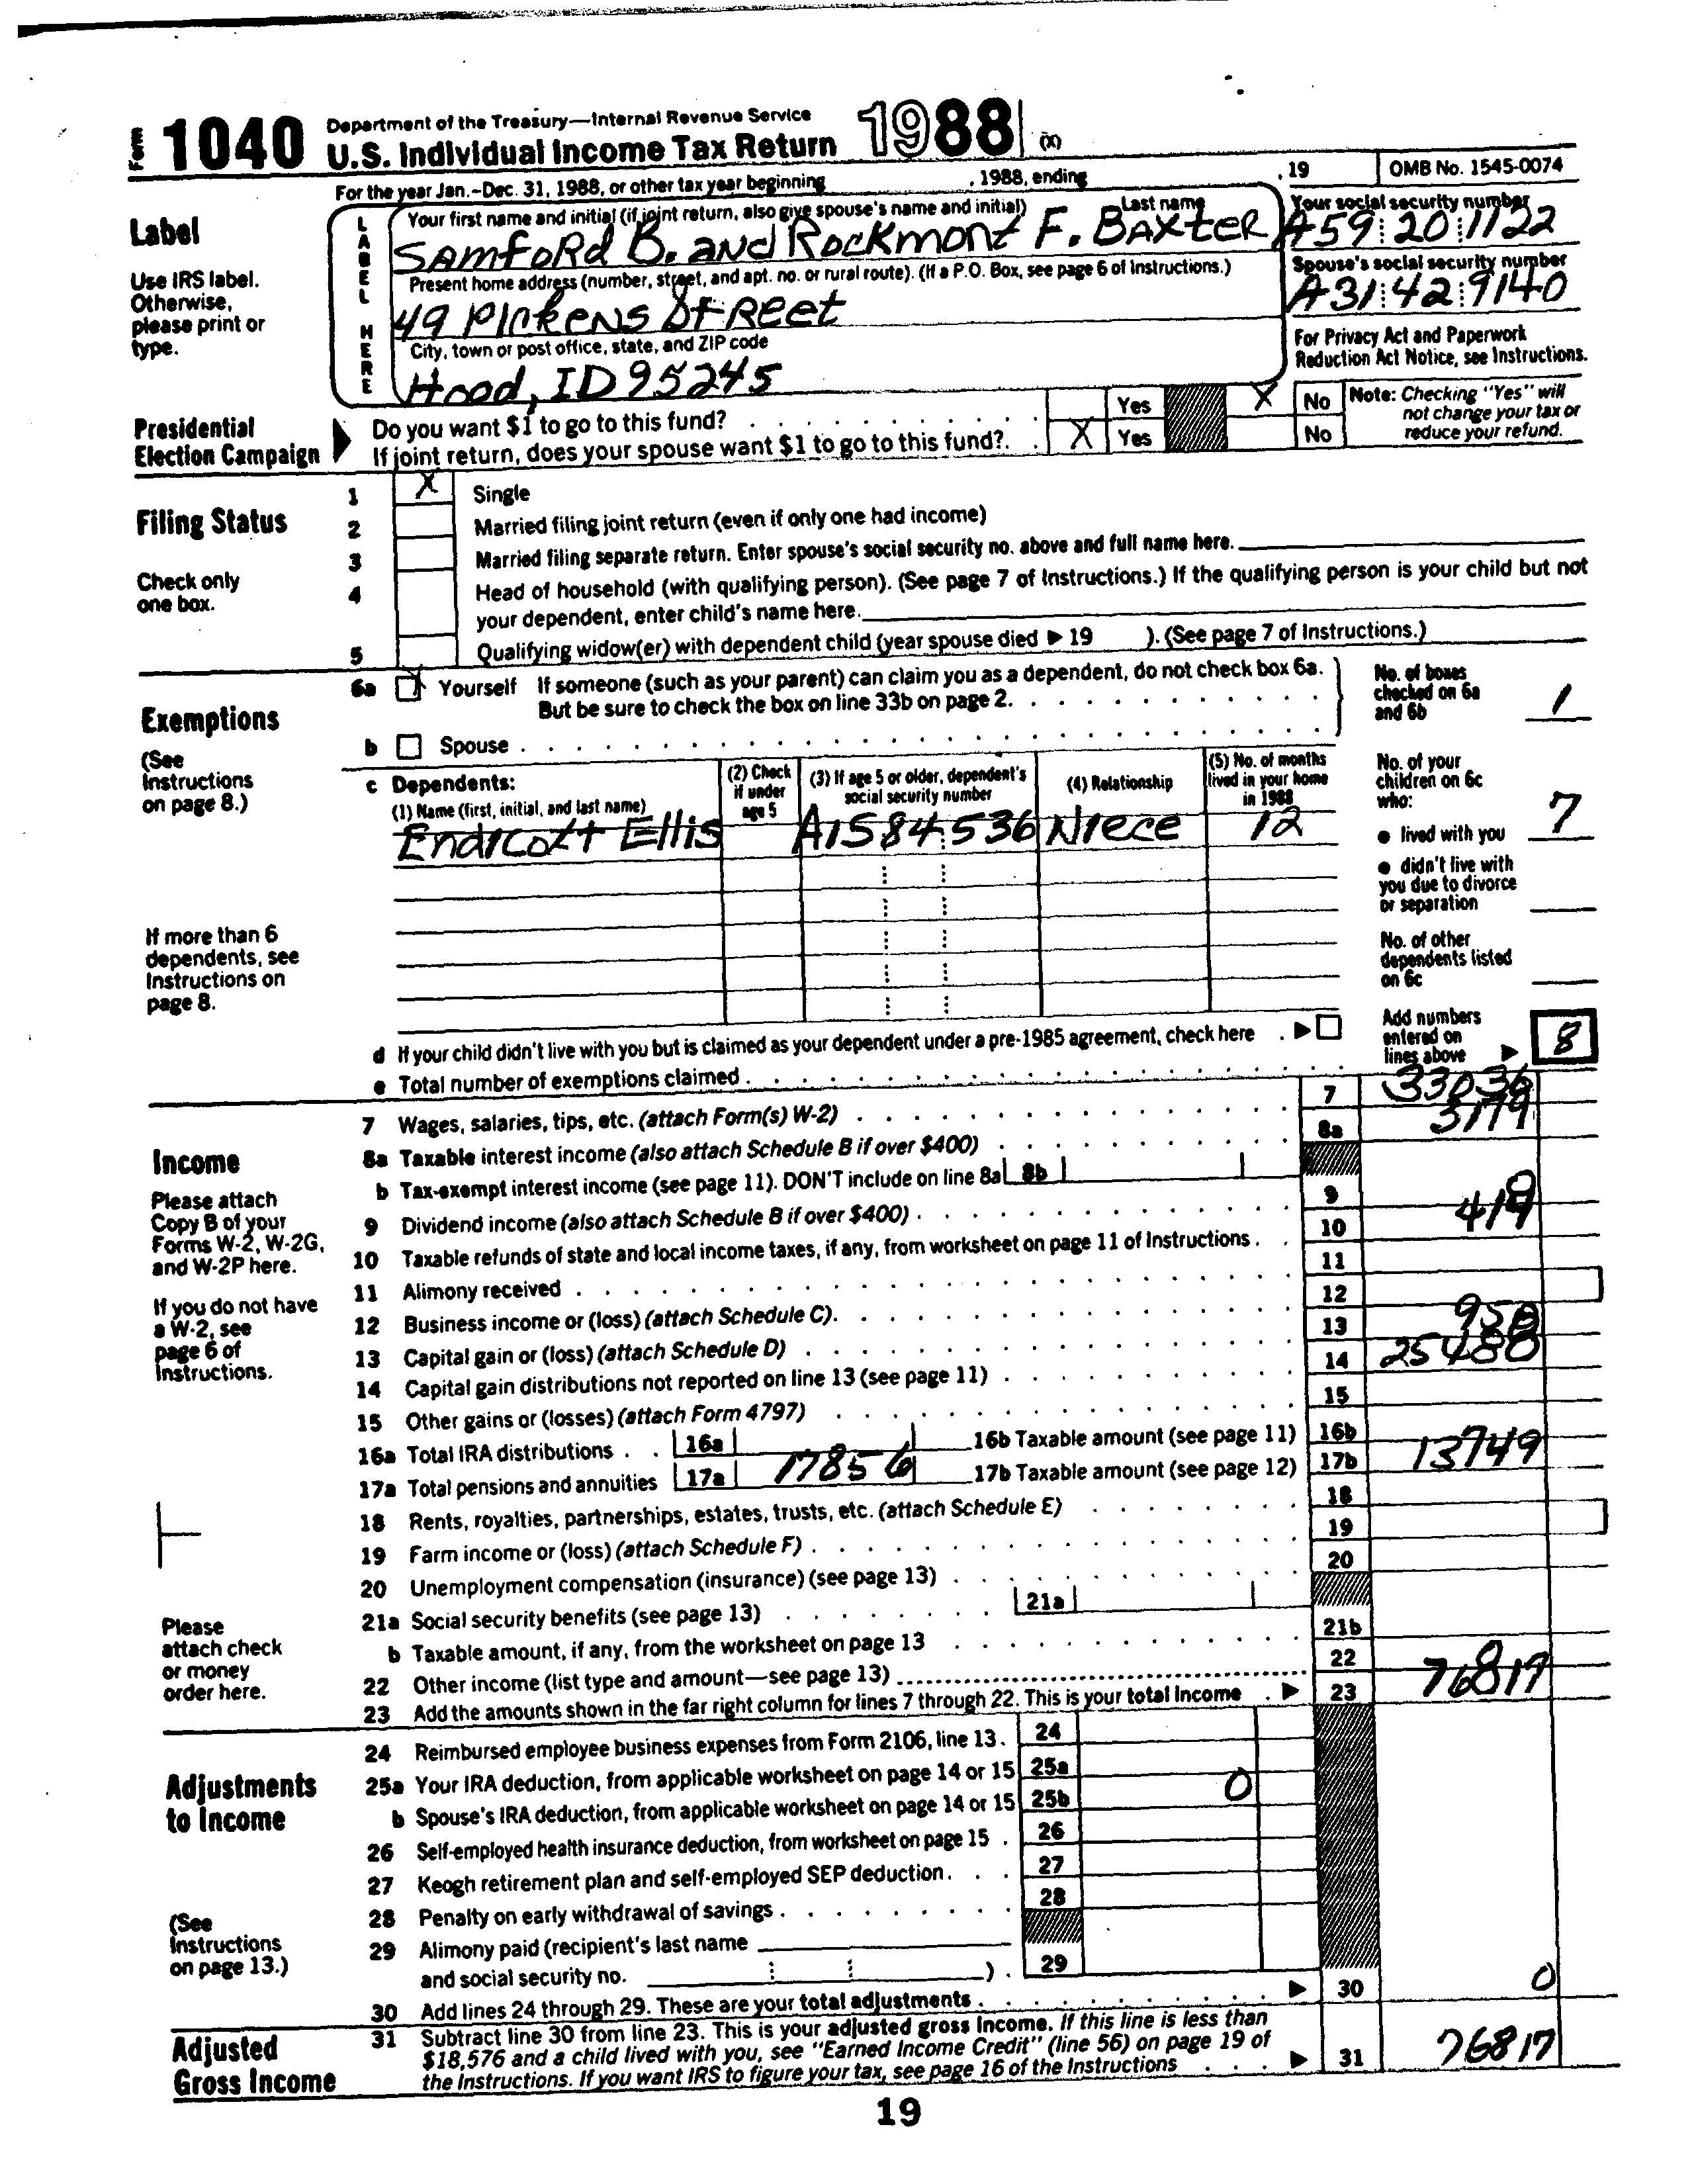 Form 1040 Department of the Treasury—Internal Revenue Service
U.S. Individual Income Tax Return 1988 (X)
For the year Jan.–Dec. 31, 1988, or other tax year beginning , 1988, ending , 19 OMB No. 1545-0074
Label
Use IRS label.
Otherwise,
please print or
type.
LABEL HERE
Your first name and initial (if joint return, also give spouse's name and initial) Last name
SAMFORD B. and ROCKMONT F. BAXTER
Your social security number
A59 20 1122
Present home address (number, street, and apt. no. or rural route). (If a P.O. Box, see page 6 of Instructions.)
49 PICKENS StReet
Spouse's social security number
A31 42 9140
City, town or post office, state, and ZIP code
Hood, ID 95245
For Privacy Act and Paperwork
Reduction Act Notice, see Instructions.
Presidential
Election Campaign
Do you want $1 to go to this fund? Yes X No
If joint return, does your spouse want $1 to go to this fund? X Yes No
Note: Checking "Yes" will
not change your tax or
reduce your refund.
Filing Status
Check only
one box.
1 X Single
2 Married filing joint return (even if only one had income)
3 Married filing separate return. Enter spouse's social security no. above and full name here.
4 Head of household (with qualifying person). (See page 7 of Instructions.) If the qualifying person is your child but not
your dependent, enter child's name here.
5 Qualifying widow(er) with dependent child (year spouse died ▶ 19 ). (See page 7 of Instructions.)
Exemptions
(See
Instructions
on page 8.)
6a X Yourself If someone (such as your parent) can claim you as a dependent, do not check box 6a.
But be sure to check the box on line 33b on page 2.
b Spouse
No. of boxes
checked on 6a
and 6b 1
c Dependents:
(1) Name (first, initial, and last name)
(2) Check
if under
age 5
(3) If age 5 or older, dependent's
social security number
(4) Relationship
(5) No. of months
lived in your home
in 1988
Endicott Ellis A1584536 Niece 12
No. of your
children on 6c
who:
● lived with you 7
● didn't live with
you due to divorce
or separation
No. of other
dependents listed
on 6c
If more than 6
dependents, see
Instructions on
page 8.
d If your child didn't live with you but is claimed as your dependent under a pre-1985 agreement, check here ▶
e Total number of exemptions claimed
Add numbers
entered on
lines above ▶ 8
Income
Please attach
Copy B of your
Forms W-2, W-2G,
and W-2P here.
If you do not have
a W-2, see
page 6 of
Instructions.
7 Wages, salaries, tips, etc. (attach Form(s) W-2) 7 33036
8a Taxable interest income (also attach Schedule B if over $400) 8a 3179
b Tax-exempt interest income (see page 11). DON'T include on line 8a 8b
9 Dividend income (also attach Schedule B if over $400) 9 0
10 Taxable refunds of state and local income taxes, if any, from worksheet on page 11 of Instructions 10 419
11 Alimony received 11
12 Business income or (loss) (attach Schedule C) 12
13 Capital gain or (loss) (attach Schedule D) 13 950
14 Capital gain distributions not reported on line 13 (see page 11) 14 25480
15 Other gains or (losses) (attach Form 4797) 15
16a Total IRA distributions 16a 16b Taxable amount (see page 11) 16b
17a Total pensions and annuities 17a 17856 17b Taxable amount (see page 12) 17b 13749
18 Rents, royalties, partnerships, estates, trusts, etc. (attach Schedule E) 18
19 Farm income or (loss) (attach Schedule F) 19
20 Unemployment compensation (insurance) (see page 13) 20
21a Social security benefits (see page 13) 21a
b Taxable amount, if any, from the worksheet on page 13 21b
22 Other income (list type and amount—see page 13) 22
23 Add the amounts shown in the far right column for lines 7 through 22. This is your total income ▶ 23 76817
Please
attach check
or money
order here.
Adjustments
to Income
(See
Instructions
on page 13.)
24 Reimbursed employee business expenses from Form 2106, line 13. 24
25a Your IRA deduction, from applicable worksheet on page 14 or 15 25a 0
b Spouse's IRA deduction, from applicable worksheet on page 14 or 15 25b
26 Self-employed health insurance deduction, from worksheet on page 15 26
27 Keogh retirement plan and self-employed SEP deduction 27
28 Penalty on early withdrawal of savings 28
29 Alimony paid (recipient's last name
and social security no. ) 29
30 Add lines 24 through 29. These are your total adjustments ▶ 30 0
Adjusted
Gross Income
31 Subtract line 30 from line 23. This is your adjusted gross income. If this line is less than
$18,576 and a child lived with you, see "Earned Income Credit" (line 56) on page 19 of
the Instructions. If you want IRS to figure your tax, see page 16 of the Instructions ▶ 31 76817
19